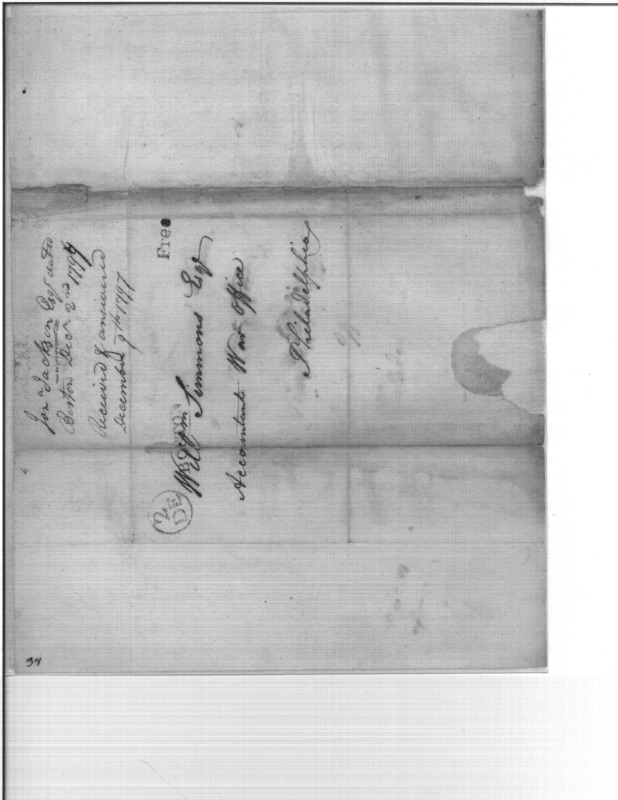 Jon Jackson Esqr dated
Boston Decr 2nd 1797
Received & answered
December 9th 1797
Free
Willm Simmons Esqr
Accountant War Office
Philadelphia
34